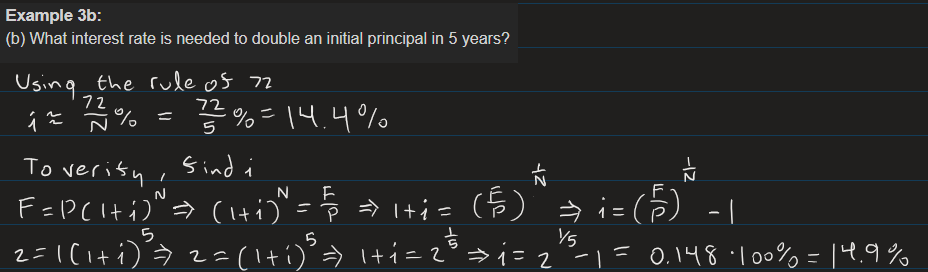 Example 3b:
(b) What interest rate is needed to double an initial principal in 5 years?
Using the rule of 72
i ≈ 72/N % = 72/5 % = 14.4%
To verify, find i
F = P(1+i)^N ⇒ (1+i)^N = F/P ⇒ 1+i = (F/P)^(1/N) ⇒ i = (F/P)^(1/N) - 1
2 = 1(1+i)^5 ⇒ 2 = (1+i)^5 ⇒ 1+i = 2^(1/5) ⇒ i = 2^(1/5) - 1 = 0.148 · 100% = 14.9%